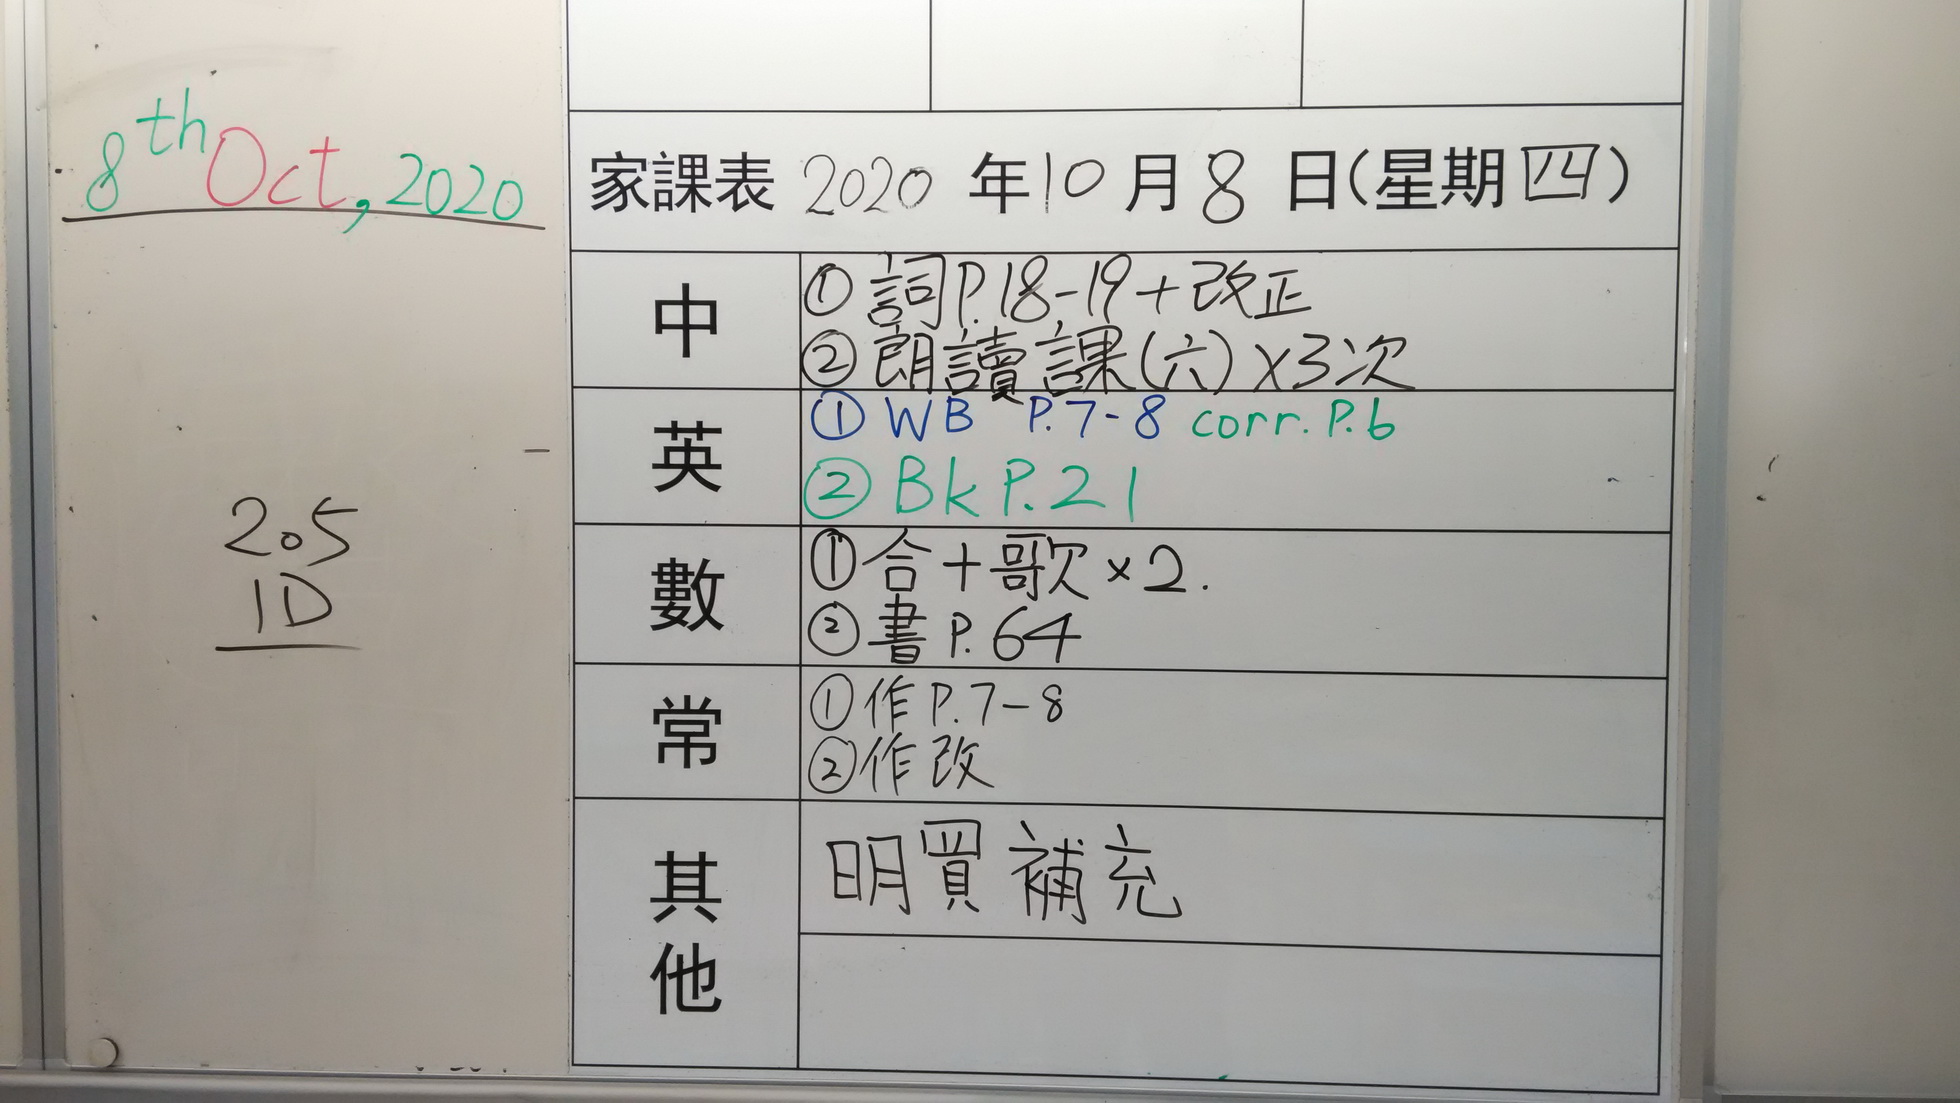 8th Oct, 2020
205
1D
家課表 2020 年 10 月 8 日(星期四)
中
① 詞 P.18-19 + 改正
② 朗讀 課(六) x3次
英
① WB P.7-8 corr. P.6
② Bk P.21
數
① 合+歌×2.
② 書 P.64
常
① 作 P.7-8
② 作改
其他
明買補充